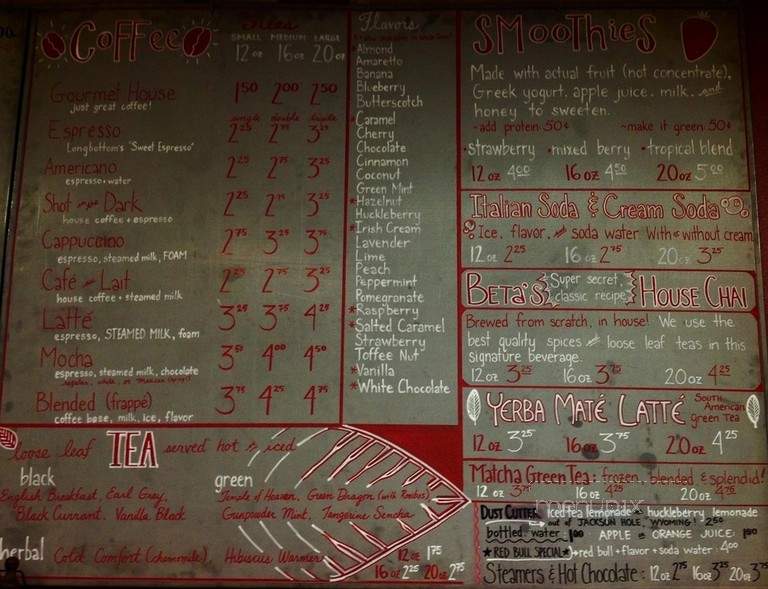 COFFEE
Sizes
SMALL MEDIUM LARGE
12 oz 16 oz 20 oz
Gourmet House 1 50 2 00 2 50
just great coffee!
single double triple
Espresso 2 25 2 75 3 25
Longbottom's "Sweet Espresso"
Americano 2 25 2 75 3 25
espresso + water
Shot in the Dark 2 25 2 75 3 25
house coffee + espresso
Cappuccino 2 75 3 25 3 75
espresso, steamed milk, FOAM
Café au Lait 2 25 2 75 3 25
house coffee + steamed milk
Latté 3 25 3 75 4 25
espresso, STEAMED MILK, foam
Mocha 3 50 4 00 4 50
espresso, steamed milk, chocolate
regular, white, or Mexican (spicy!)
Blended (frappé) 3 75 4 25 4 75
coffee base, milk, ice, flavor
loose leaf TEA served hot or iced
black
English Breakfast, Earl Grey,
Black Currant, Vanilla Black
green
Temple of Heaven, Green Dragon (with Rooibos)
Gunpowder Mint, Tangerine Sencha
herbal Cold Comfort (chamomile), Hibiscus Warmer
12 oz 1 75
16 oz 2 25 20 oz 2 75
Flavors
*Almond
Amaretto
Banana
Blueberry
Butterscotch
*Caramel
Cherry
Chocolate
Cinnamon
Coconut
Green Mint
*Hazelnut
Huckleberry
*Irish Cream
Lavender
Lime
Peach
Peppermint
Pomegranate
*Raspberry
*Salted Caramel
Strawberry
Toffee Nut
*Vanilla
*White Chocolate
SMOOTHIES
Made with actual fruit (not concentrate),
Greek yogurt, apple juice, milk, and
honey to sweeten.
~add protein 50¢ ~make it green 50¢
•strawberry •mixed berry •tropical blend
12 oz 4 00 16 oz 4 50 20 oz 5 00
Italian Soda & Cream Soda
Ice, flavor, and soda water with or without cream
12 oz 2 25 16 oz 2 75 20 oz 3 25
BETA'S Super secret, classic recipe HOUSE CHAI
Brewed from scratch, in house! We use the
best quality spices and loose leaf teas in this
signature beverage.
12 oz 3 25 16 oz 3 75 20 oz 4 25
YERBA MATÉ LATTÉ South American green tea
12 oz 3 25 16 oz 3 75 20 oz 4 25
Matcha Green Tea: frozen, blended & splendid!
12 oz 3 75 16 oz 4 25 20 oz 4 75
DUST CUTTER iced tea lemonade or huckleberry lemonade
out of JACKSUN HOLE, WYOMING! 2 50
bottled water 1 00 APPLE or ORANGE JUICE: 1 50
*RED BULL SPECIAL* red bull + flavor + soda water: 4 00
Steamers & Hot Chocolate: 12 oz 2 75 16 oz 3 25 20 oz 3 75